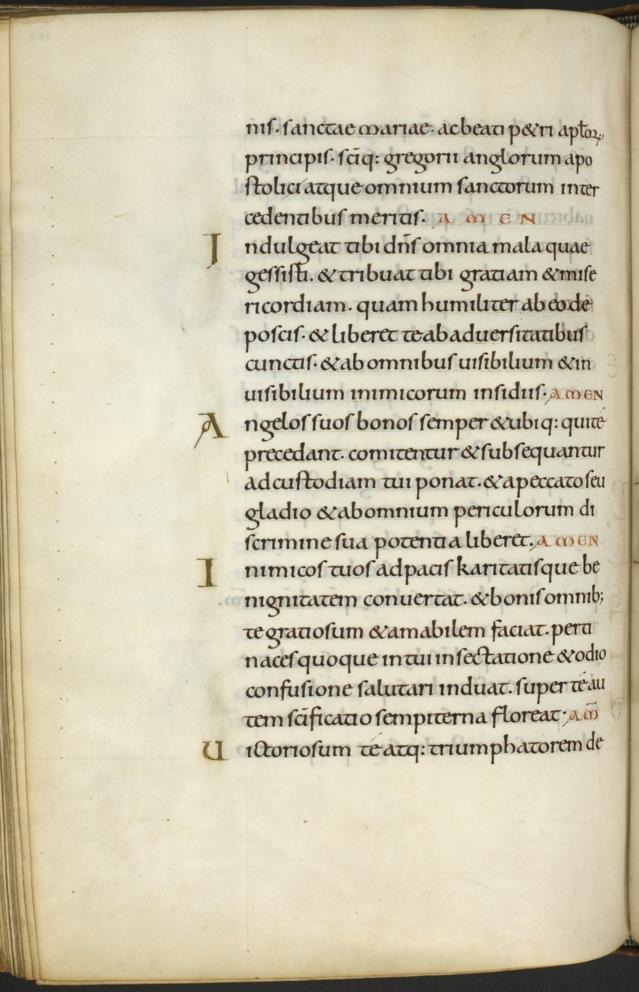 nis. sanctae mariae. ac beati p&ri aptłoꝝ,
principis. sc̄iq: gregorii anglorum apo
stolici atque omnium sanctorum inter
cedentibus meritis. AMEN
Indulgeat tibi dn̄s omnia mala quae
gessisti. & tribuat tibi gratiam & mise
ricordiam. quam humiliter ab eo de
poscis. & liberet te ab aduersitatibus
cunctis. & ab omnibus uisibilium & in
uisibilium inimicorum insidiis. AMEN
Angelos suos bonos semper & ubiq: qui te
precedant. comitentur & subsequantur
ad custodiam tui ponat. & a peccato seu
gladio & ab omnium periculorum di
scrimine sua potentia liberet. AMEN
Inimicos tuos ad pacis karitatisque be
nignitatem conuertat. & bonis omnib;
te gratiosum & amabilem faciat. perti
naces quoque in tui insectatione & odio
confusione salutari induat. super te au
tem sc̄ificatio sempiterna floreat. AM̄
Uictoriosum te atq: triumphatorem de